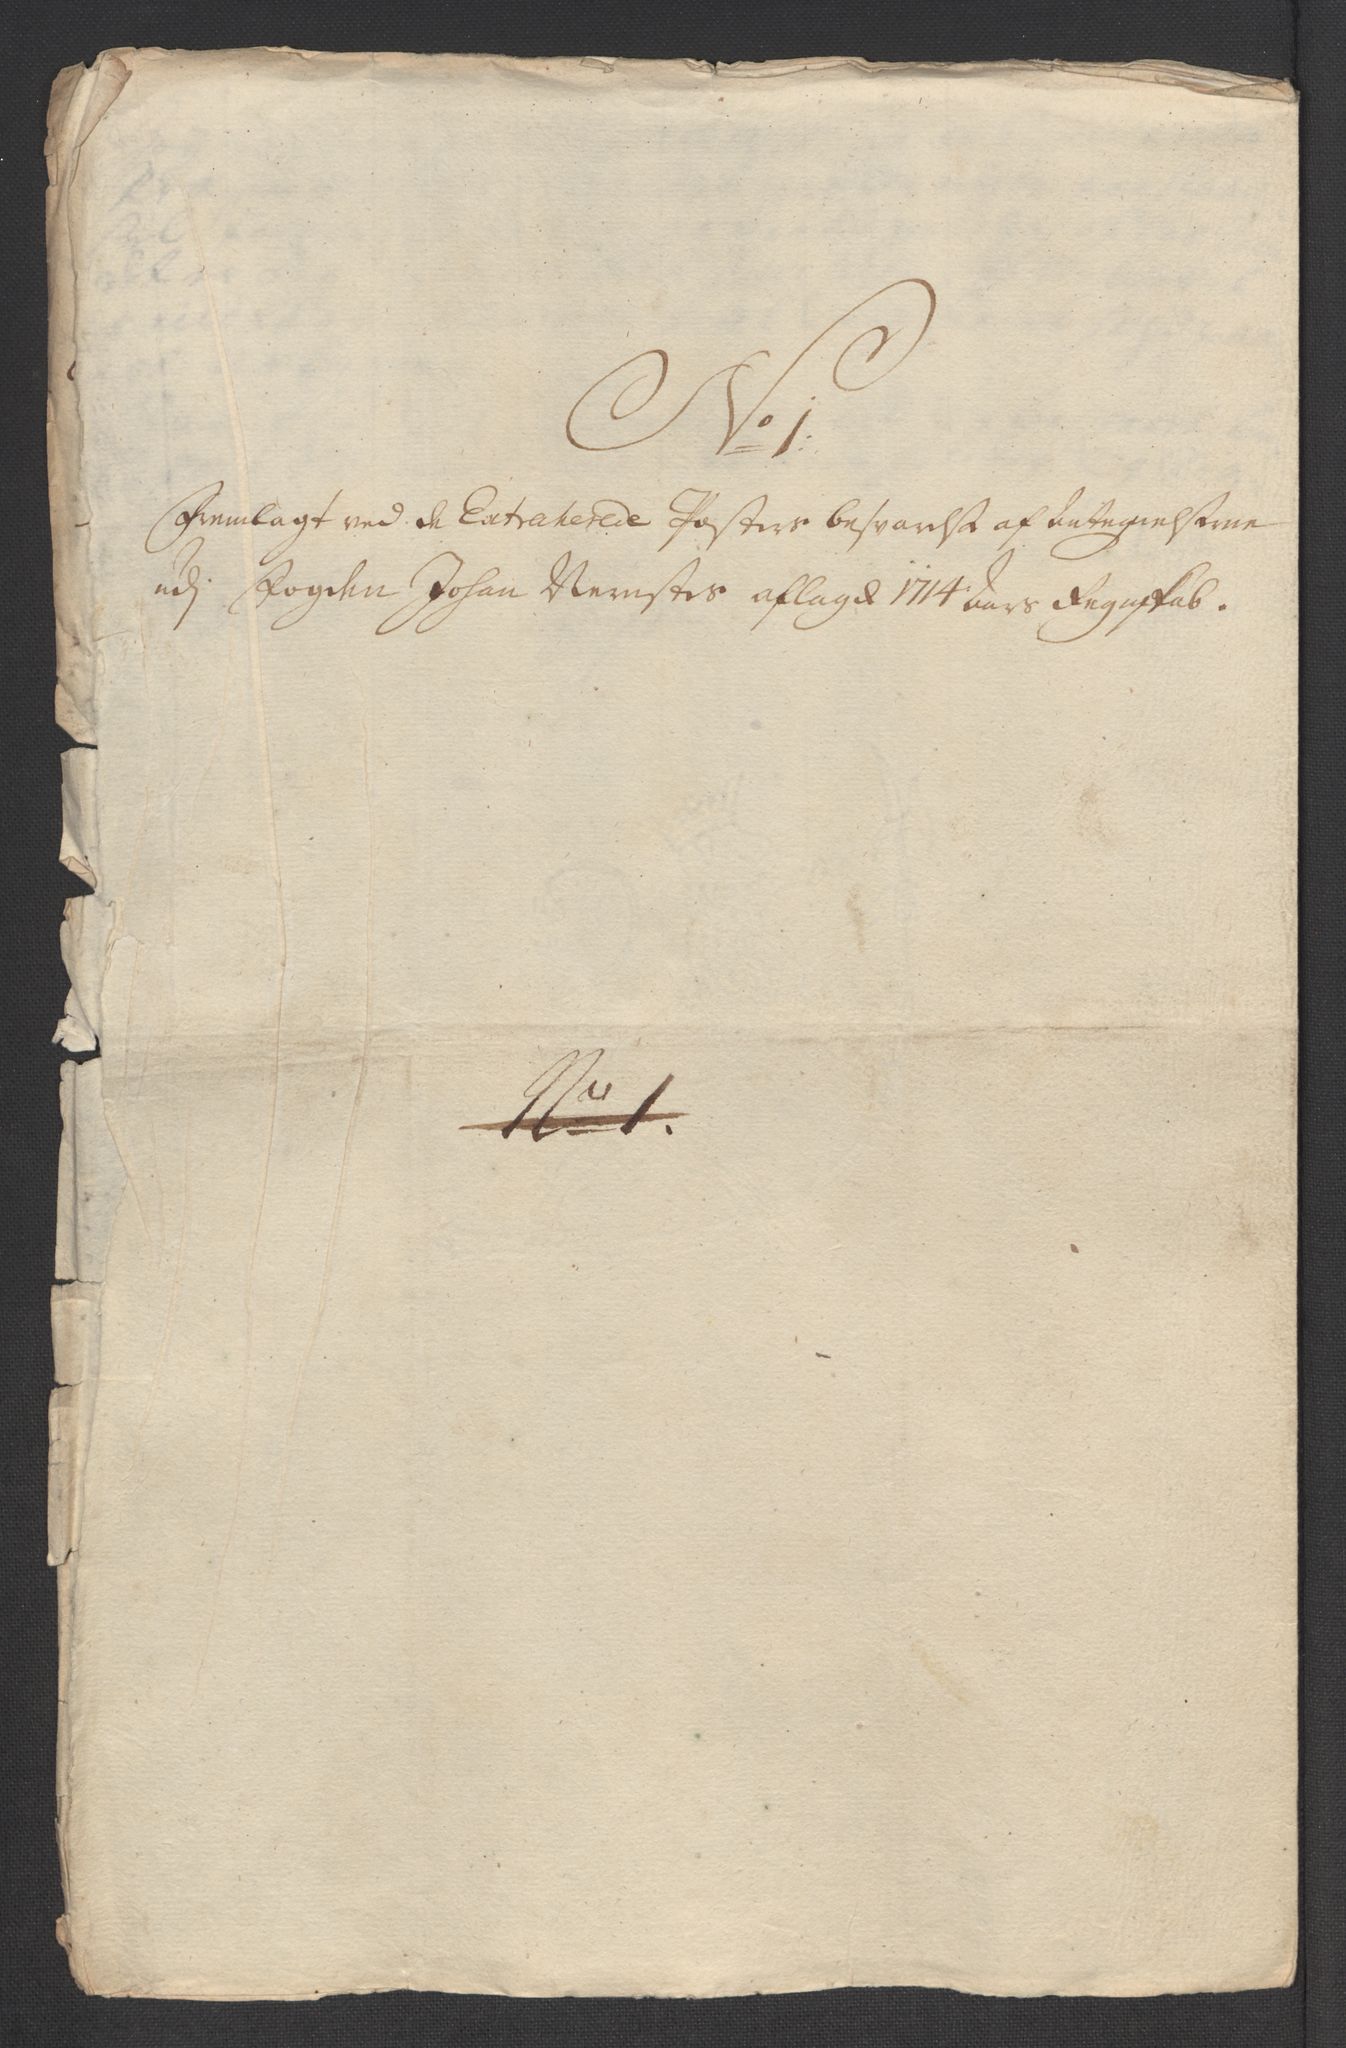 No 1:
Fremlagt ved de Extraherede Posters besvarelse af Antegnelserne
udj Fogden Johan Nernstes aflagde 1714 Aars Regnskab.
No 1.